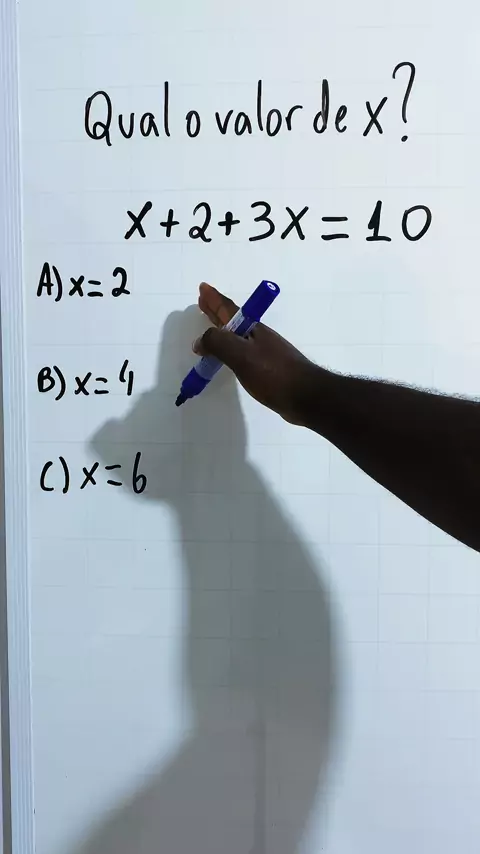 Qual o valor de x?
x+2+3x=10
A) x=2
B) x=4
C) x=6